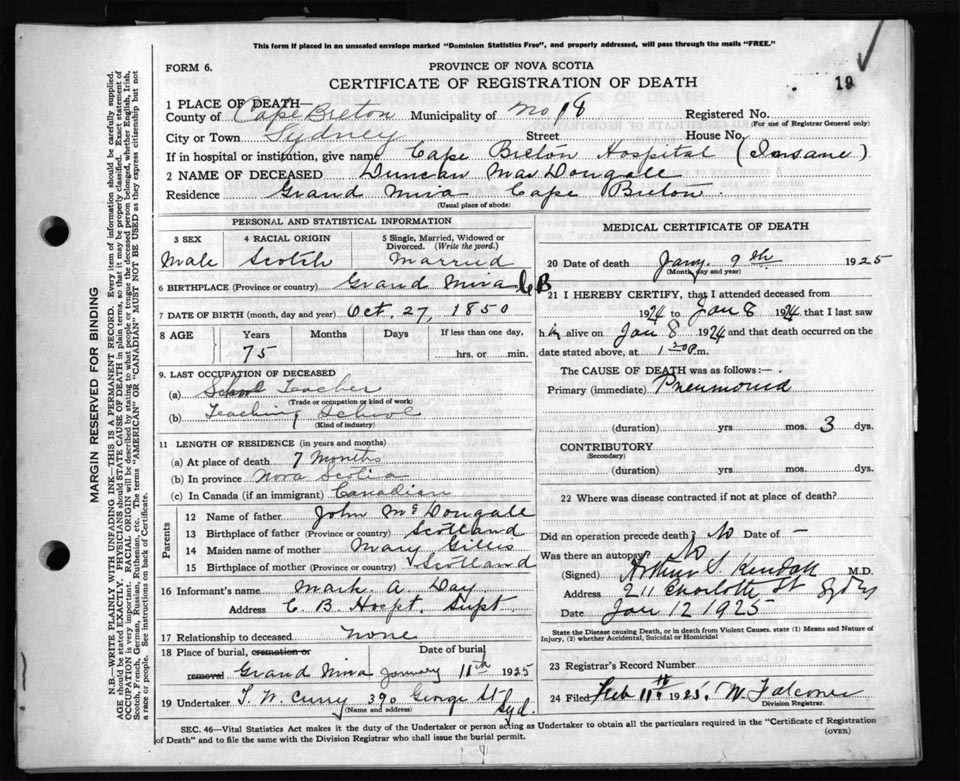 This form if placed in an unsealed envelope marked "Dominion Statistics Free", and properly addressed, will pass through the mails "FREE."
FORM 6.
PROVINCE OF NOVA SCOTIA
CERTIFICATE OF REGISTRATION OF DEATH
19
1 PLACE OF DEATH—
County of Cape Breton Municipality of No 18 Registered No.
(For use of Registrar General only)
City or Town Sydney Street House No.
If in hospital or institution, give name Cape Breton Hospital (Insane)
2 NAME OF DECEASED Duncan MacDougall
Residence Grand Mira Cape Breton
(Usual place of abode)
PERSONAL AND STATISTICAL INFORMATION
3 SEX 4 RACIAL ORIGIN 5 Single, Married, Widowed or Divorced. (Write the word.)
Male Scotch Married
6 BIRTHPLACE (Province or country) Grand Mira C B
7 DATE OF BIRTH (month, day and year) Oct. 27, 1850
8 AGE Years Months Days If less than one day,
75 hrs. or min.
9. LAST OCCUPATION OF DECEASED
(a) School Teacher
(Trade or occupation or kind of work)
(b) Teaching School
(Kind of industry)
11 LENGTH OF RESIDENCE (in years and months)
(a) At place of death 7 Months
(b) In province Nova Scotia
(c) In Canada (if an immigrant) Canadian
Parents
12 Name of father John McDougall
13 Birthplace of father (Province or country) Scotland
14 Maiden name of mother Mary Gillis
15 Birthplace of mother (Province or country) Scotland
16 Informant's name Mark A. Day
Address C. B. Hospt. Supt.
17 Relationship to deceased none
18 Place of burial, cremation or Date of burial
removal Grand Mira January 11th 1925
19 Undertaker T. W. Curry 390 George St Syd.
(Name and address)
MEDICAL CERTIFICATE OF DEATH
20 Date of death Jany. 9th 1925
(Month, day and year)
21 I HEREBY CERTIFY, that I attended deceased from
1924 to Jan 8 1924 that I last saw
him alive on Jan 8 1924 and that death occurred on
date stated above, at 1 30 P.m.
The CAUSE OF DEATH was as follows:—
Primary (immediate) Pneumonia
(duration) yrs. mos. 3 dys.
CONTRIBUTORY
(Secondary)
(duration) yrs. mos. dys.
22 Where was disease contracted if not at place of death?
Did an operation precede death? No Date of —
Was there an autopsy? No
(Signed) Arthur S. Kendall M.D.
Address 211 Charlotte St Sydney
Date Jan 12 1925
State the Disease causing Death, or in death from Violent Causes, state (1) Means and Nature of
Injury, (2) whether Accidental, Suicidal or Homicidal
23 Registrar's Record Number
24 Filed Feb 11th 1925. W. Falconer
Division Registrar.
SEC. 46—Vital Statistics Act makes it the duty of the Undertaker or person acting as Undertaker to obtain all the particulars required in the "Certificate of Registration
of Death" and to file the same with the Division Registrar who shall issue the burial permit.
(OVER)
MARGIN RESERVED FOR BINDING
N.B.—WRITE PLAINLY WITH UNFADING INK—THIS IS A PERMANENT RECORD. Every item of information should be carefully supplied.
AGE should be stated EXACTLY. PHYSICIANS should STATE CAUSE OF DEATH in plain terms, so that it may be properly classified. Exact statement of
OCCUPATION is very important. RACIAL ORIGIN will be described by stating to what people or tongue the deceased person belonged, whether English, Irish,
Scotch, French, German, Russian, Ruthenian, etc. The terms "AMERICAN" OR "CANADIAN" MUST NOT BE USED as they express citizenship but not
a race or people. See instructions on back of Certificate.